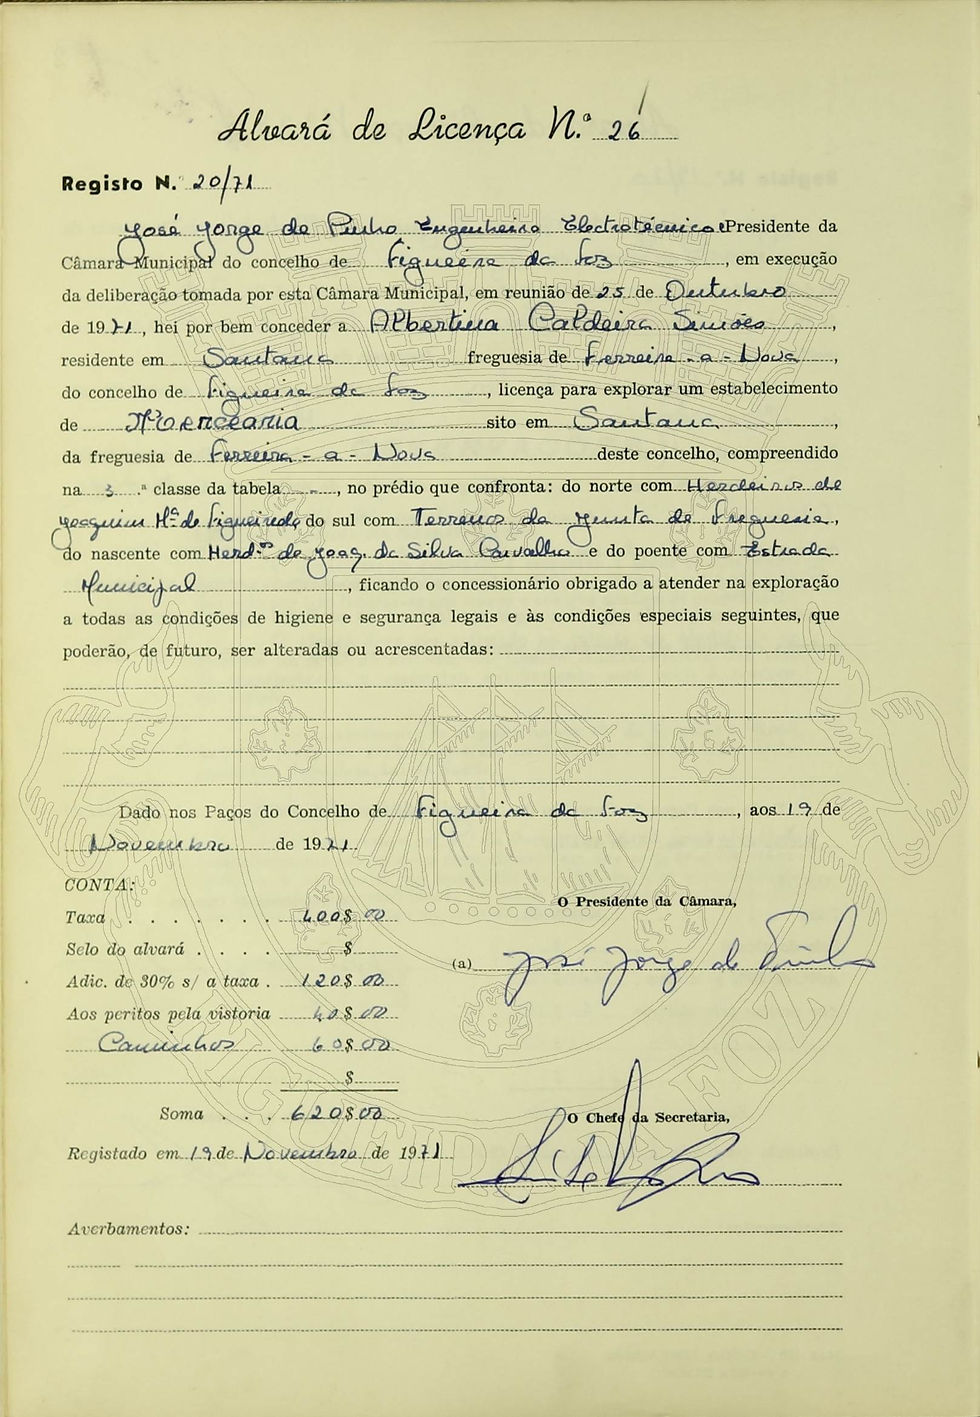 Alvará de Licença N.º 26
Registo N. 20/71
José Jorge de Pinho Engenheiro Electrotécnico e Presidente da
Câmara Municipal do concelho de Figueira da Foz, em execução
da deliberação tomada por esta Câmara Municipal, em reunião de 25 de Outubro
de 1971, hei por bem conceder a Albertina Caldeira Simões,
residente em Santana freguesia de Ferreira-a-Nova,
do concelho de Figueira da Foz, licença para explorar um estabelecimento
de Mercearia sito em Santana,
da freguesia de Ferreira-a-Nova deste concelho, compreendido
na 3.ª classe da tabela -, no prédio que confronta: do norte com Herdeiros de
Joaquim M.ª de Figueiredo, do sul com Terrenos da Junta de Freguesia,
do nascente com Herd.ros de Joaq. da Silva Carvalho e do poente com Estrada
Municipal, ficando o concessionário obrigado a atender na exploração
a todas as condições de higiene e segurança legais e às condições especiais seguintes, que
poderão, de futuro, ser alteradas ou acrescentadas:
Dado nos Paços do Concelho de Figueira da Foz, aos 19 de
Novembro de 1971.
CONTA:
O Presidente da Câmara,
Taxa . . . . . . . 400$00
Selo do alvará . . . . $
(a) José Jorge de Pinho
Adic. de 30% s/ a taxa . 120$00
Aos peritos pela vistoria 40$00
Caminhos 60$00
$
Soma . . . 620$00
O Chefe da Secretaria,
Registado em 19 de Novembro de 1971
Averbamentos:
FIGUEIRA DA FOZ